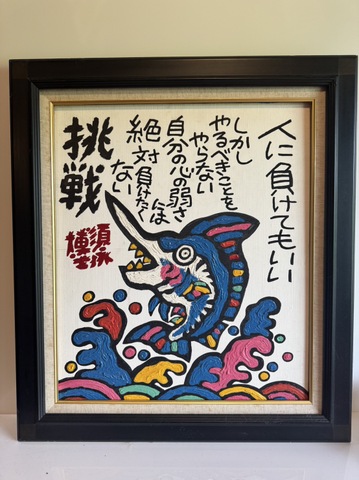 人に負けてもいい
しかし
やるべきことを
やらない
自分の心の弱さ
には
絶対負けたく
ない
挑戦
須永
博士